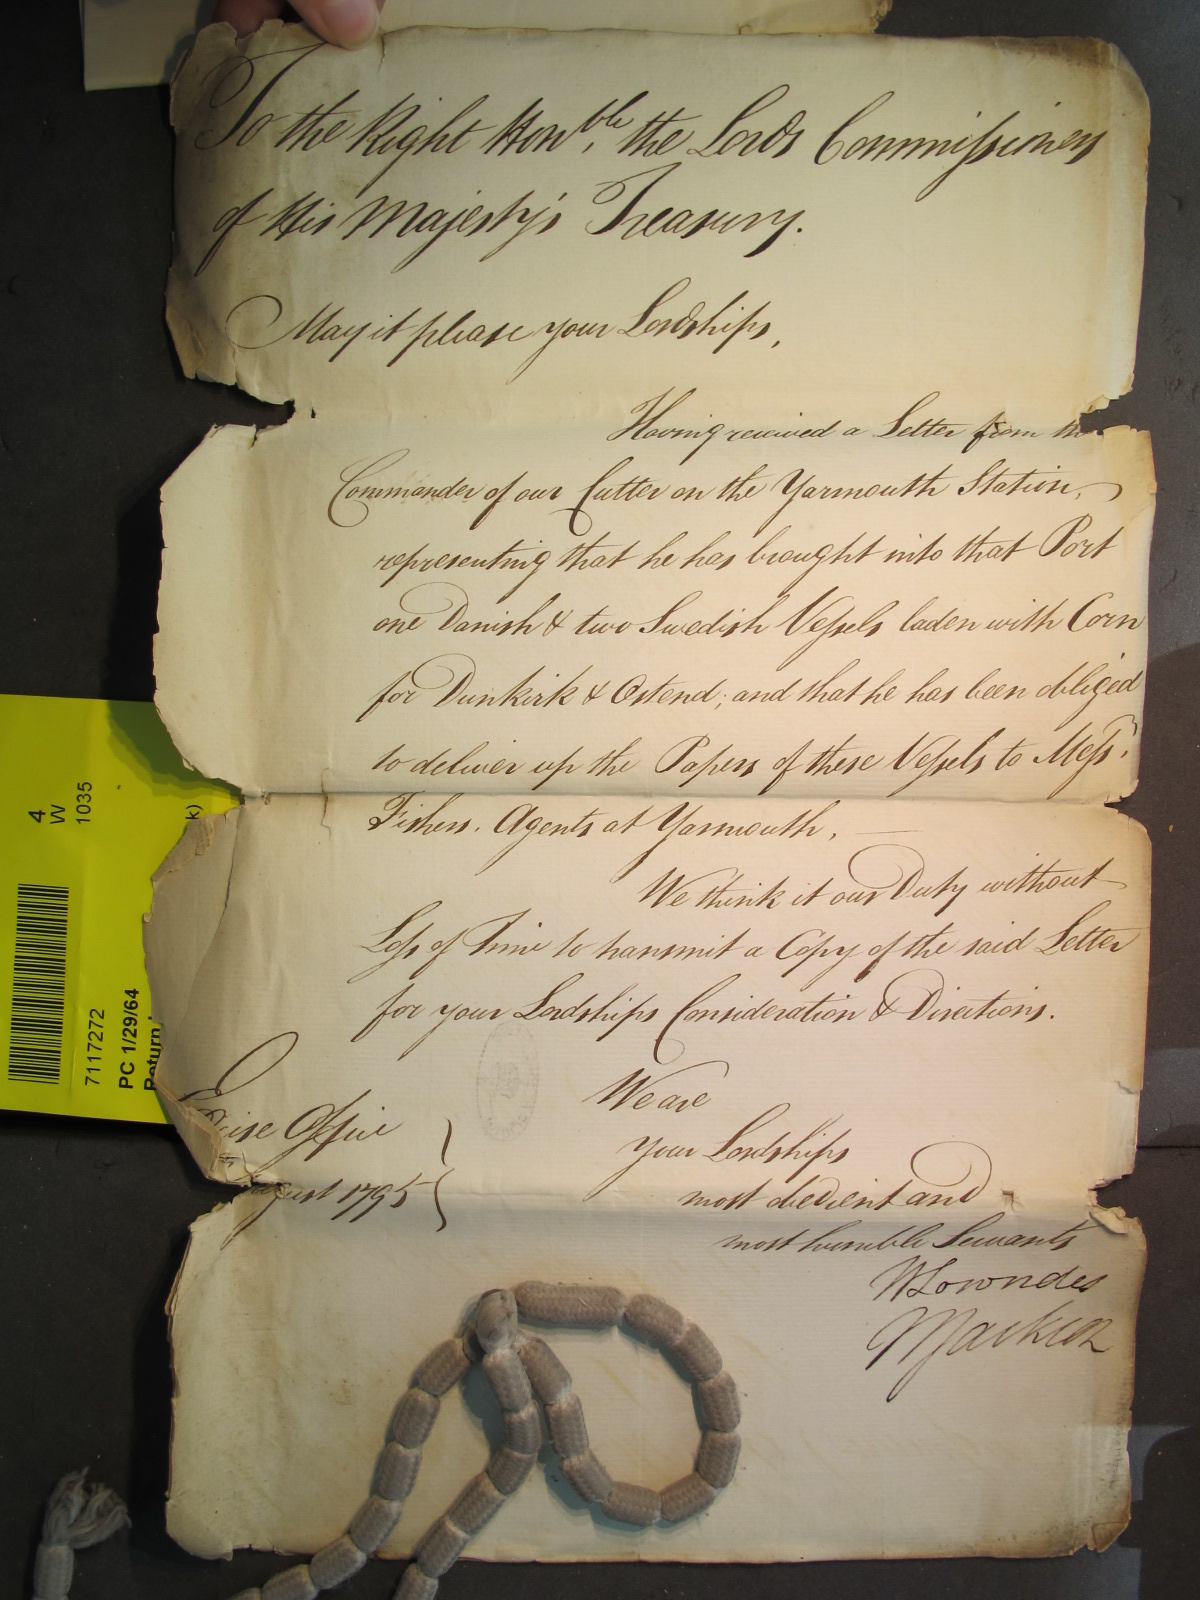 To the Right Hon.ble the Lords Commissioners
of His Majesty's Treasury.
May it please your Lordships,
Having received a Letter from the
Commander of our Cutter on the Yarmouth Station,
representing that he has brought into that Port
one Danish & two Swedish Vessels laden with Corn
for Dunkirk & Ostend; and that he has been obliged
to deliver up the Papers of these Vessels to Mess.rs
Fishers, Agents at Yarmouth. —
We think it our Duty without
Loss of Time to transmit a Copy of the said Letter
for your Lordships Consideration & Directions.
We are
your Lordships
most obedient and
most humble Servants
W Lowndes
Excise Office
August 1795
4
W
1035
k)
7117272
PC 1/29/64
Return